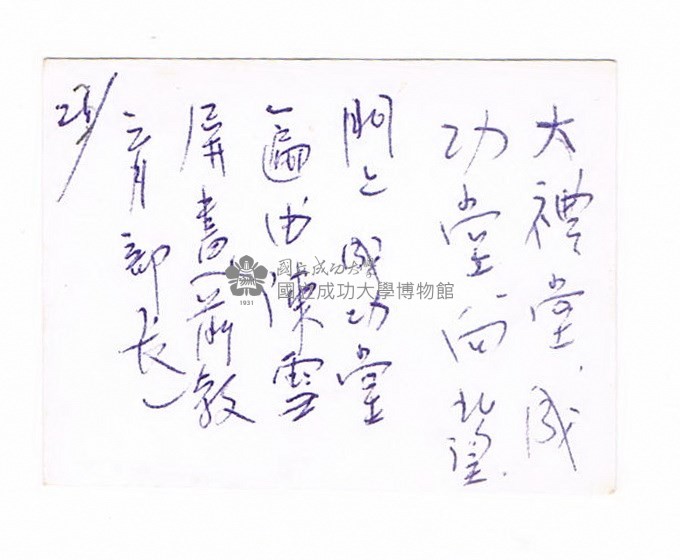 大禮堂、成
功堂向北望.
門上成功堂
匾由陳雪
屏書(前教
育部長)
國立成功大學
國立成功大學博物館
1931